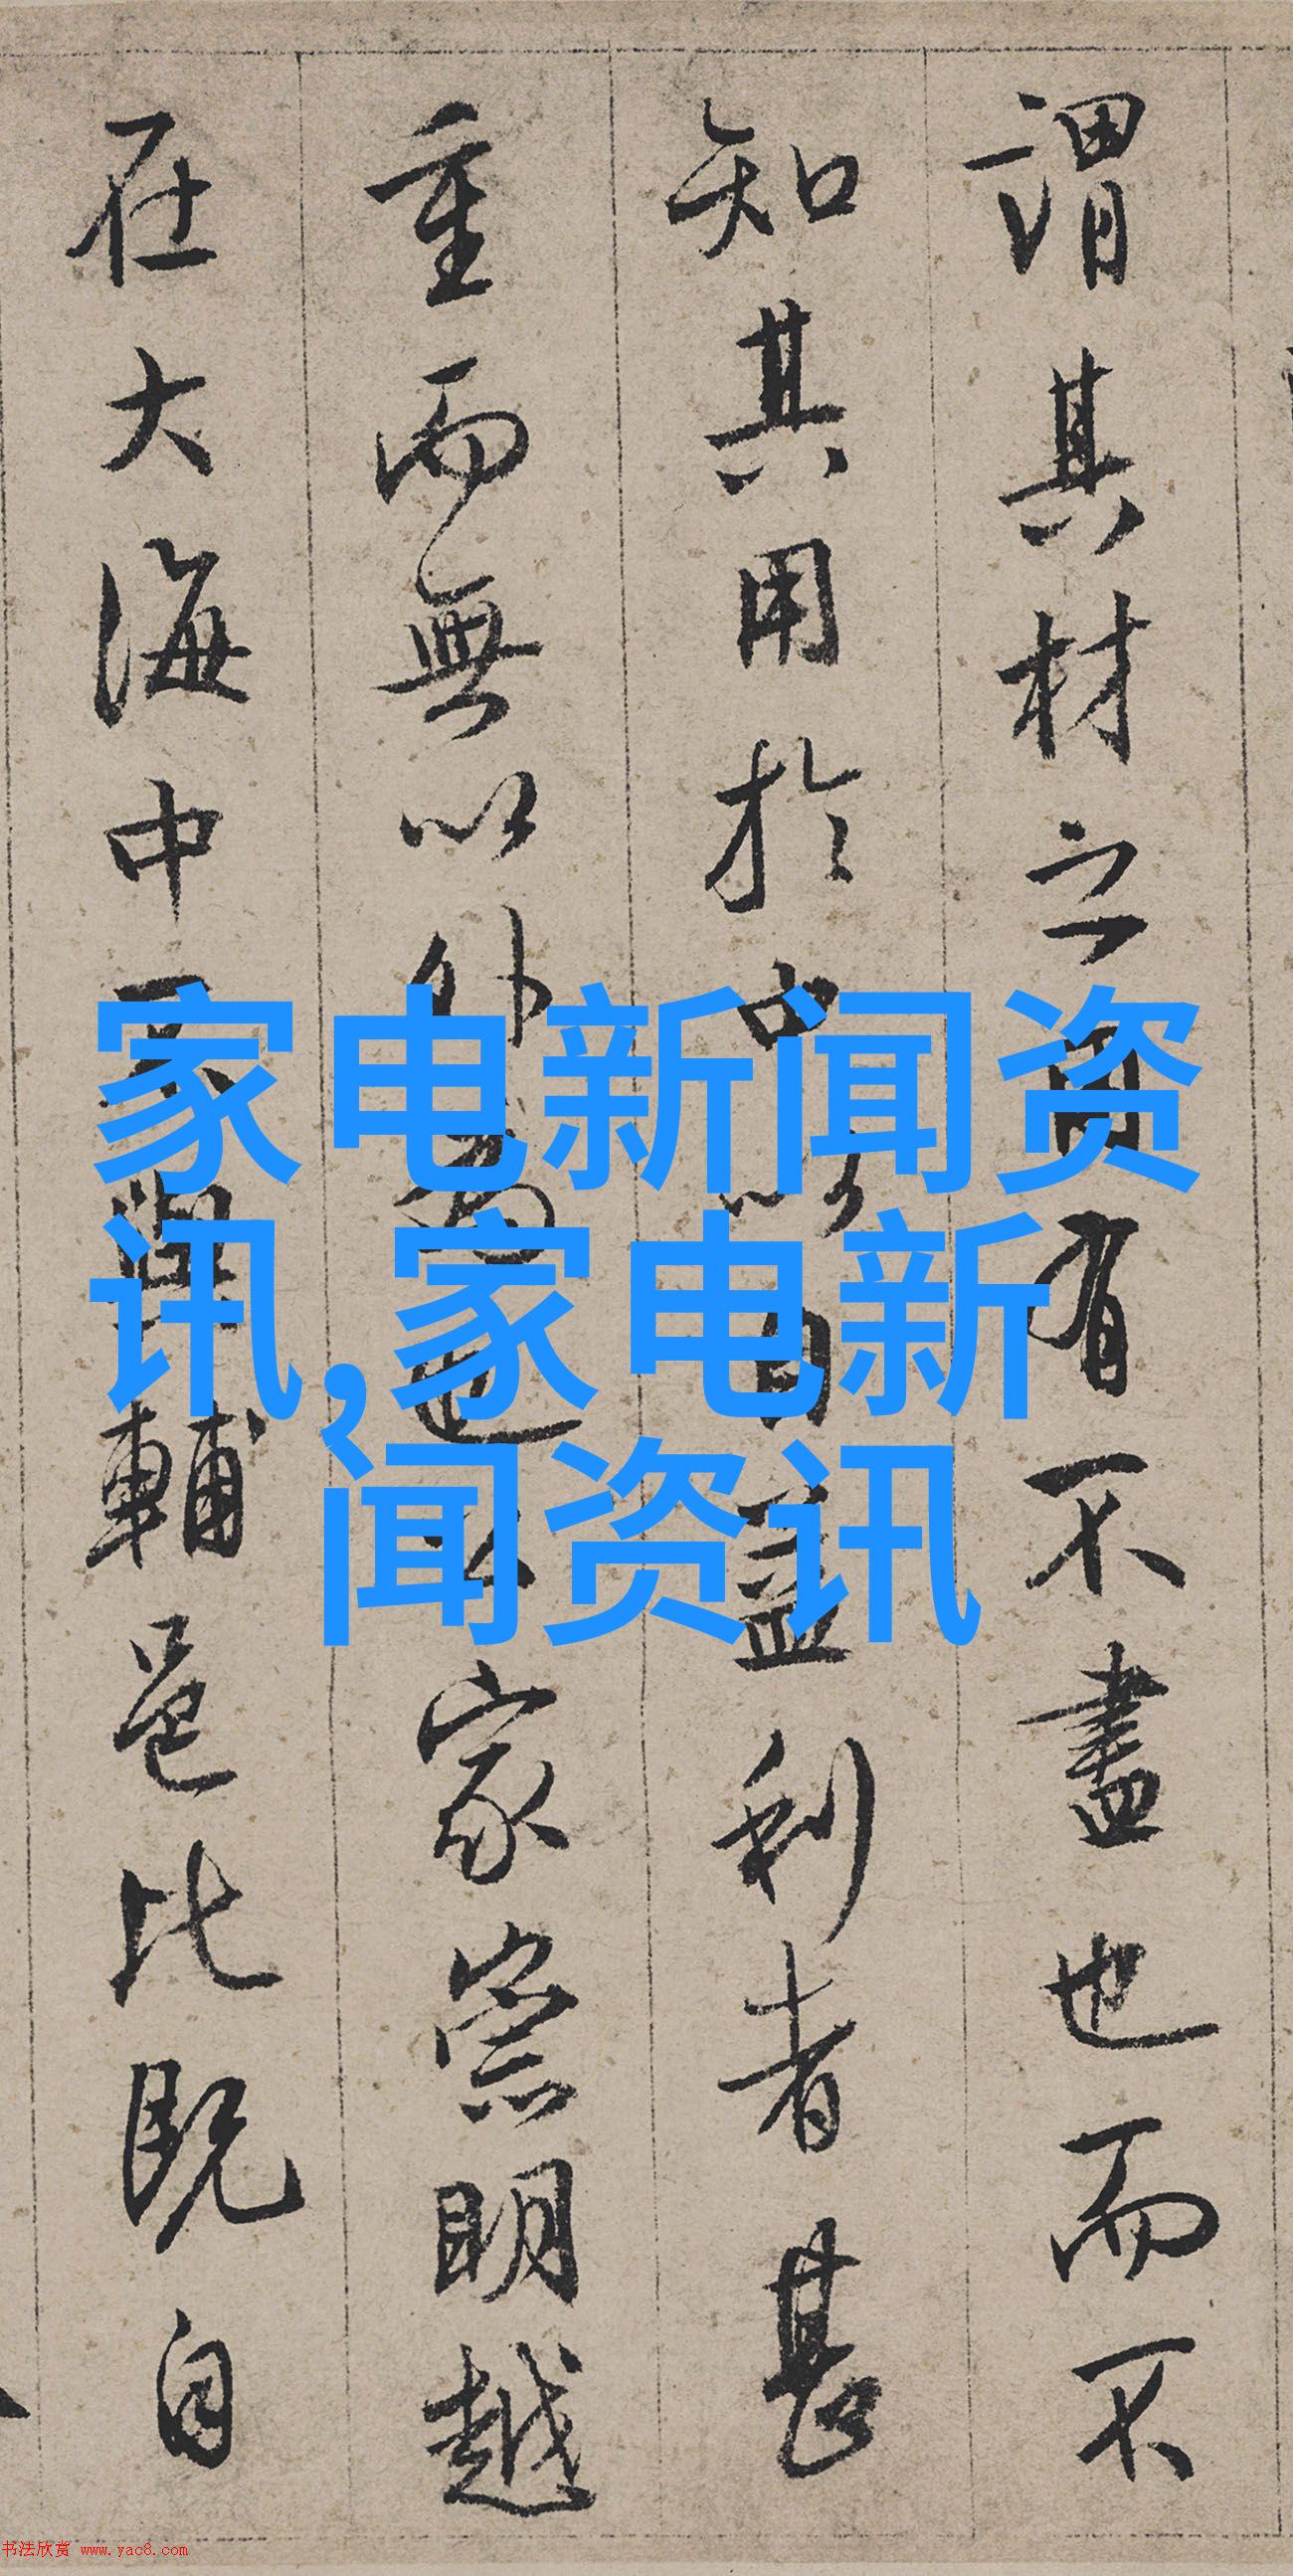 謂其材之有不盡也而不
知其用於中以自益利者甚
重而無以外家崇明越
在大海中輔邑比既自
家电新闻资
讯,家电新
闻资讯
书法欣赏 www.yac8.com